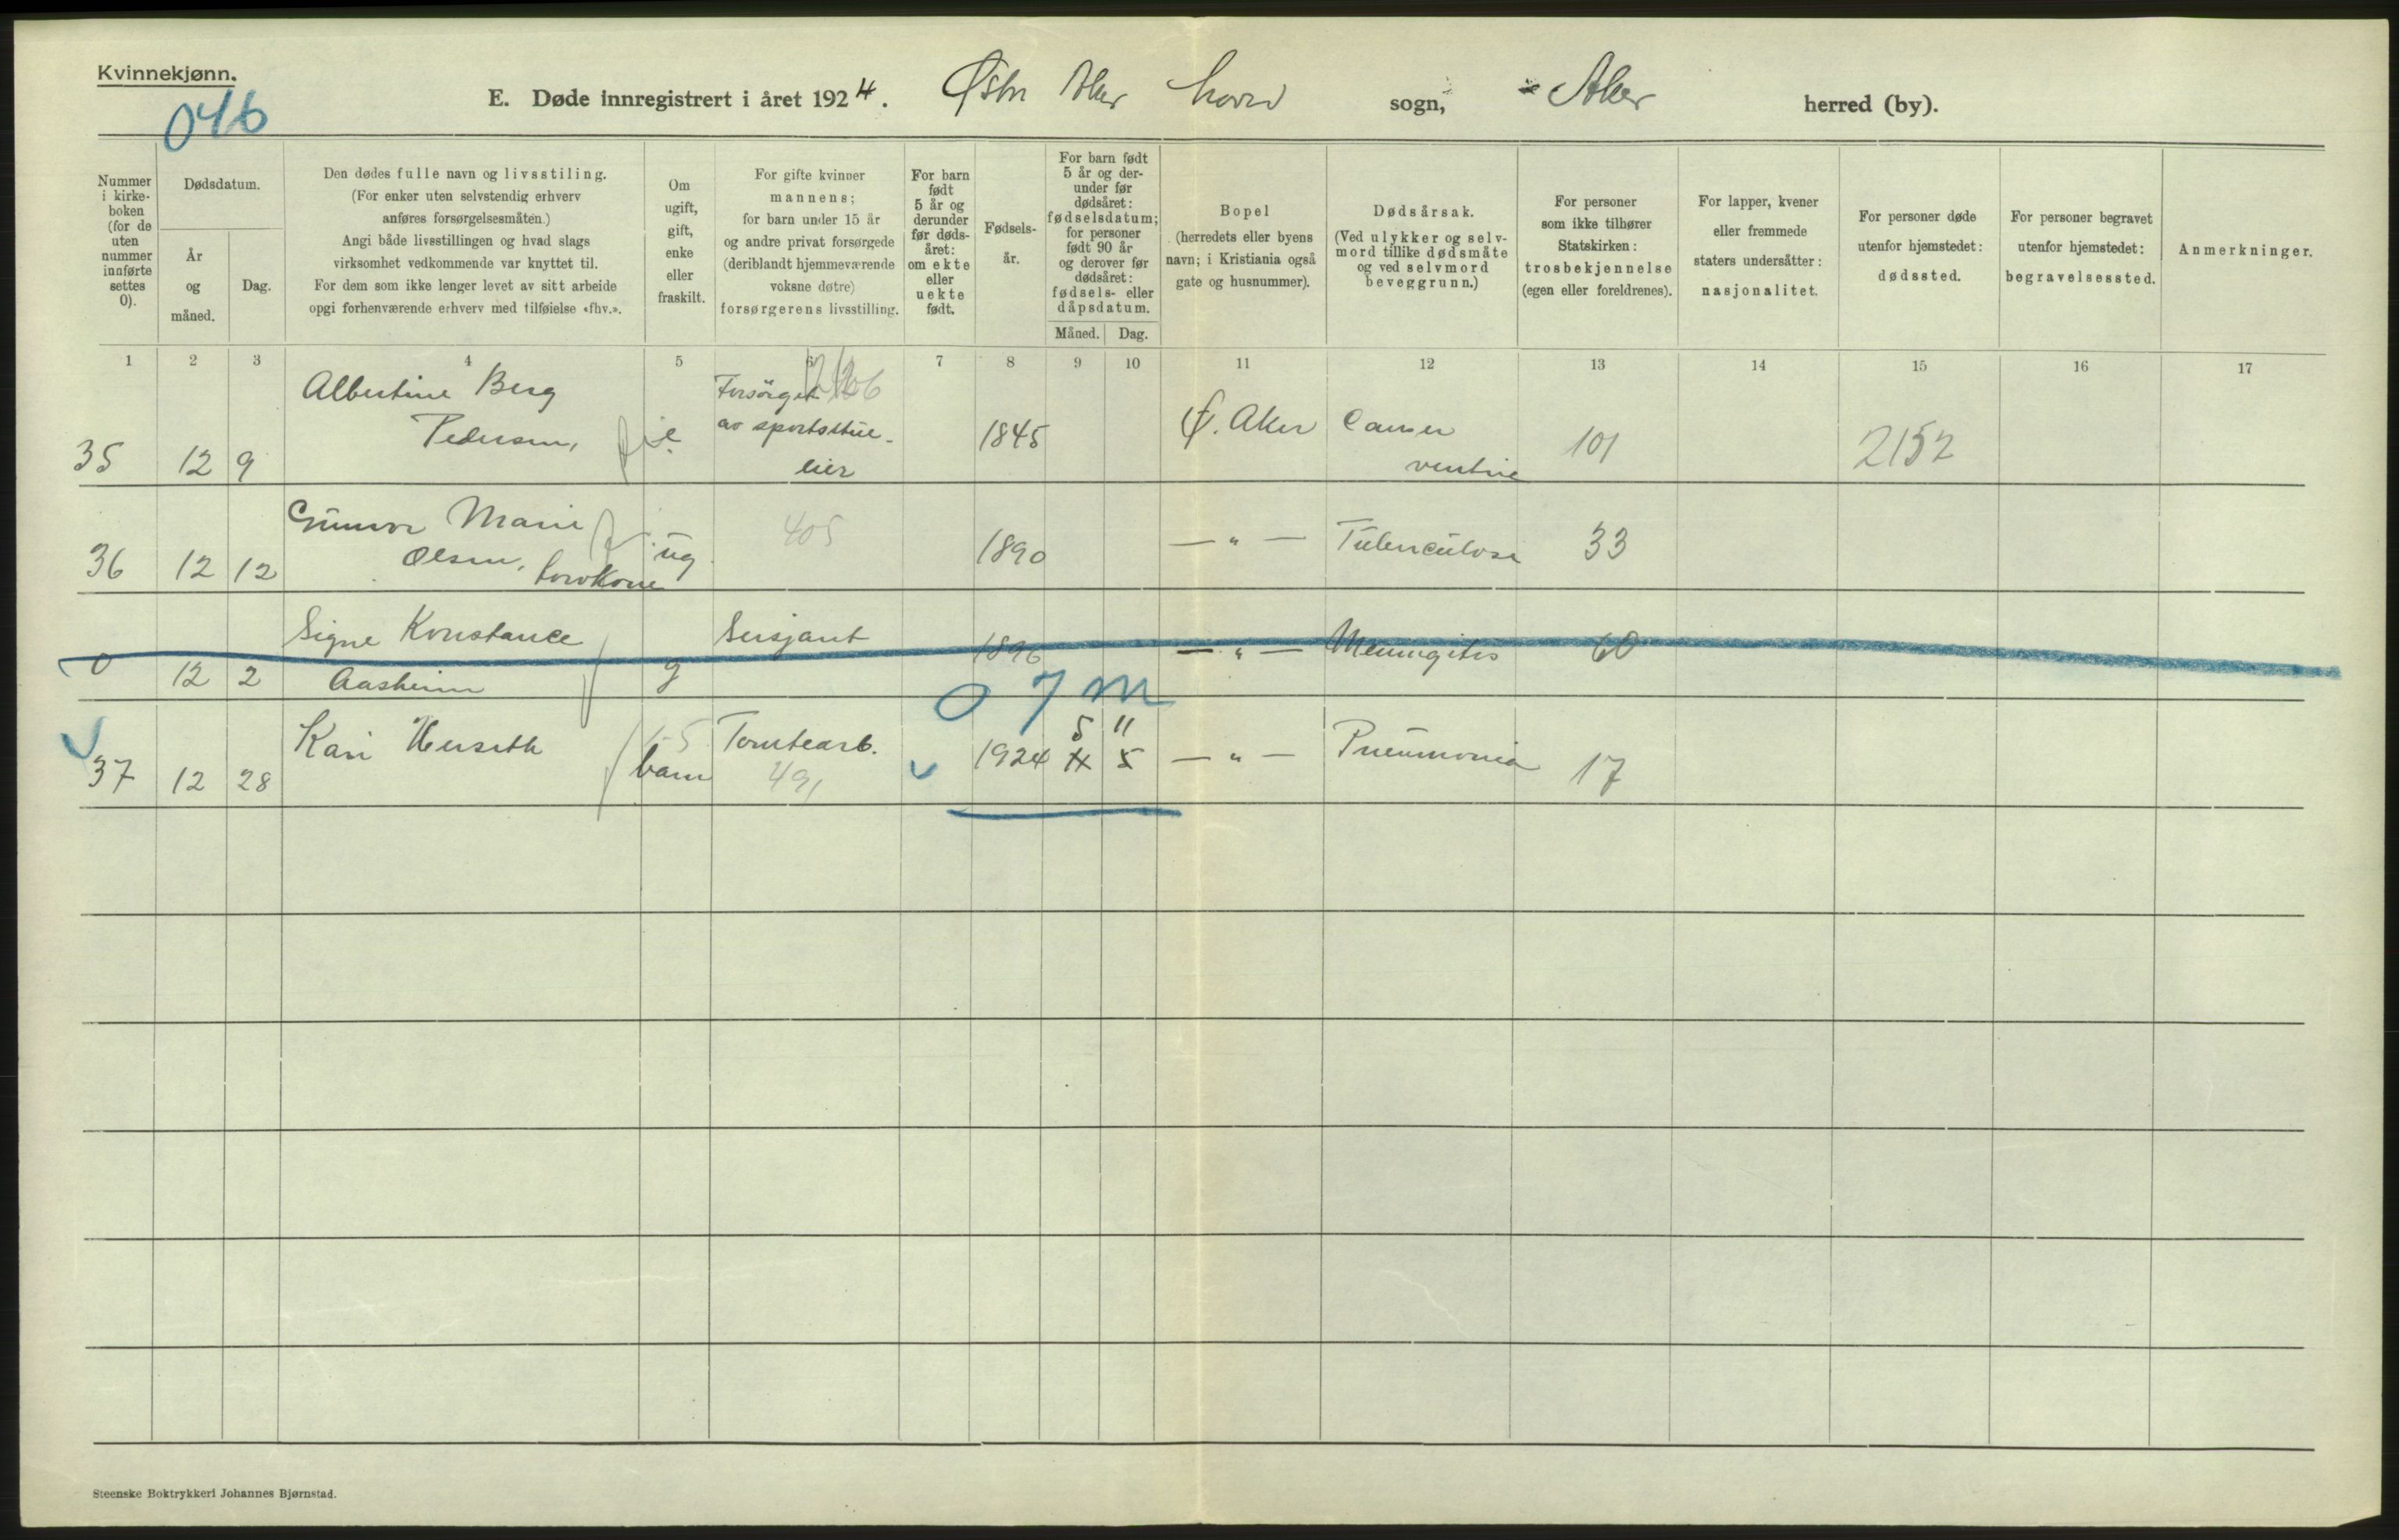 Kvinnekjønn.
046
E. Døde innregistrert i året 1924. Østre Aker hoved sogn, Aker herred (by).
Nummer i kirkeboken (for de uten nummer innførte settes 0).
Dødsdatum.
År og måned.
Dag.
Den dødes fulle navn og livsstiling.
(For enker uten selvstendig erhverv
anføres forsørgelsesmåten.)
Angi både livsstillingen og hvad slags
virksomhet vedkommende var knyttet til.
For dem som ikke lenger levet av sitt arbeide
opgi forhenværende erhverv med tilføielse «fhv.».
Om
ugift,
gift,
enke
eller
fraskilt.
For gifte kvinner
mannens;
for barn under 15 år
og andre privat forsørgede
(deriblandt hjemmeværende
voksne døtre)
forsørgerens livsstilling.
For barn
født
5 år og
derunder
før døds-
året:
om ekte
eller
uekte
født.
Fødsels-
år.
For barn født
5 år og der-
under før
dødsåret:
fødselsdatum;
for personer
født 90 år
og derover før
dødsåret:
fødsels- eller
dåpsdatum.
Måned. Dag.
Bopel
(herredets eller byens
navn; i Kristiania også
gate og husnummer).
Dødsårsak.
(Ved ulykker og selv-
mord tillike dødsmåte
og ved selvmord
beveggrunn.)
For personer
som ikke tilhører
Statskirken:
trosbekjennelse
(egen eller foreldrenes).
For lapper, kvener
eller fremmede
staters undersåtter:
nasjonalitet.
For personer døde
utenfor hjemstedet:
dødssted.
For personer begravet
utenfor hjemstedet:
begravelsessted.
Anmerkninger.
1 2 3 4 5 6 7 8 9 10 11 12 13 14 15 16 17
Albertine Berg Forsörget
35 12 9 Pedersen, e av sportsstue- 1845 Ø. Aker Cancer 101 2152
eier ventrie
Gunvor Marie 405
36 12 12 Olsen, ug 1890 — " — Tuberculose 33
Signe Konstance Sersjant
0 12 2 Aasheim g 1896 — " — Meningitis 60
0 7 m
5 11
37 12 28 Kari Herseth barn Tomtearb. 1924 4 5 — " — Pneumonia 17
491
Steenske Boktrykkeri Johannes Bjørnstad.